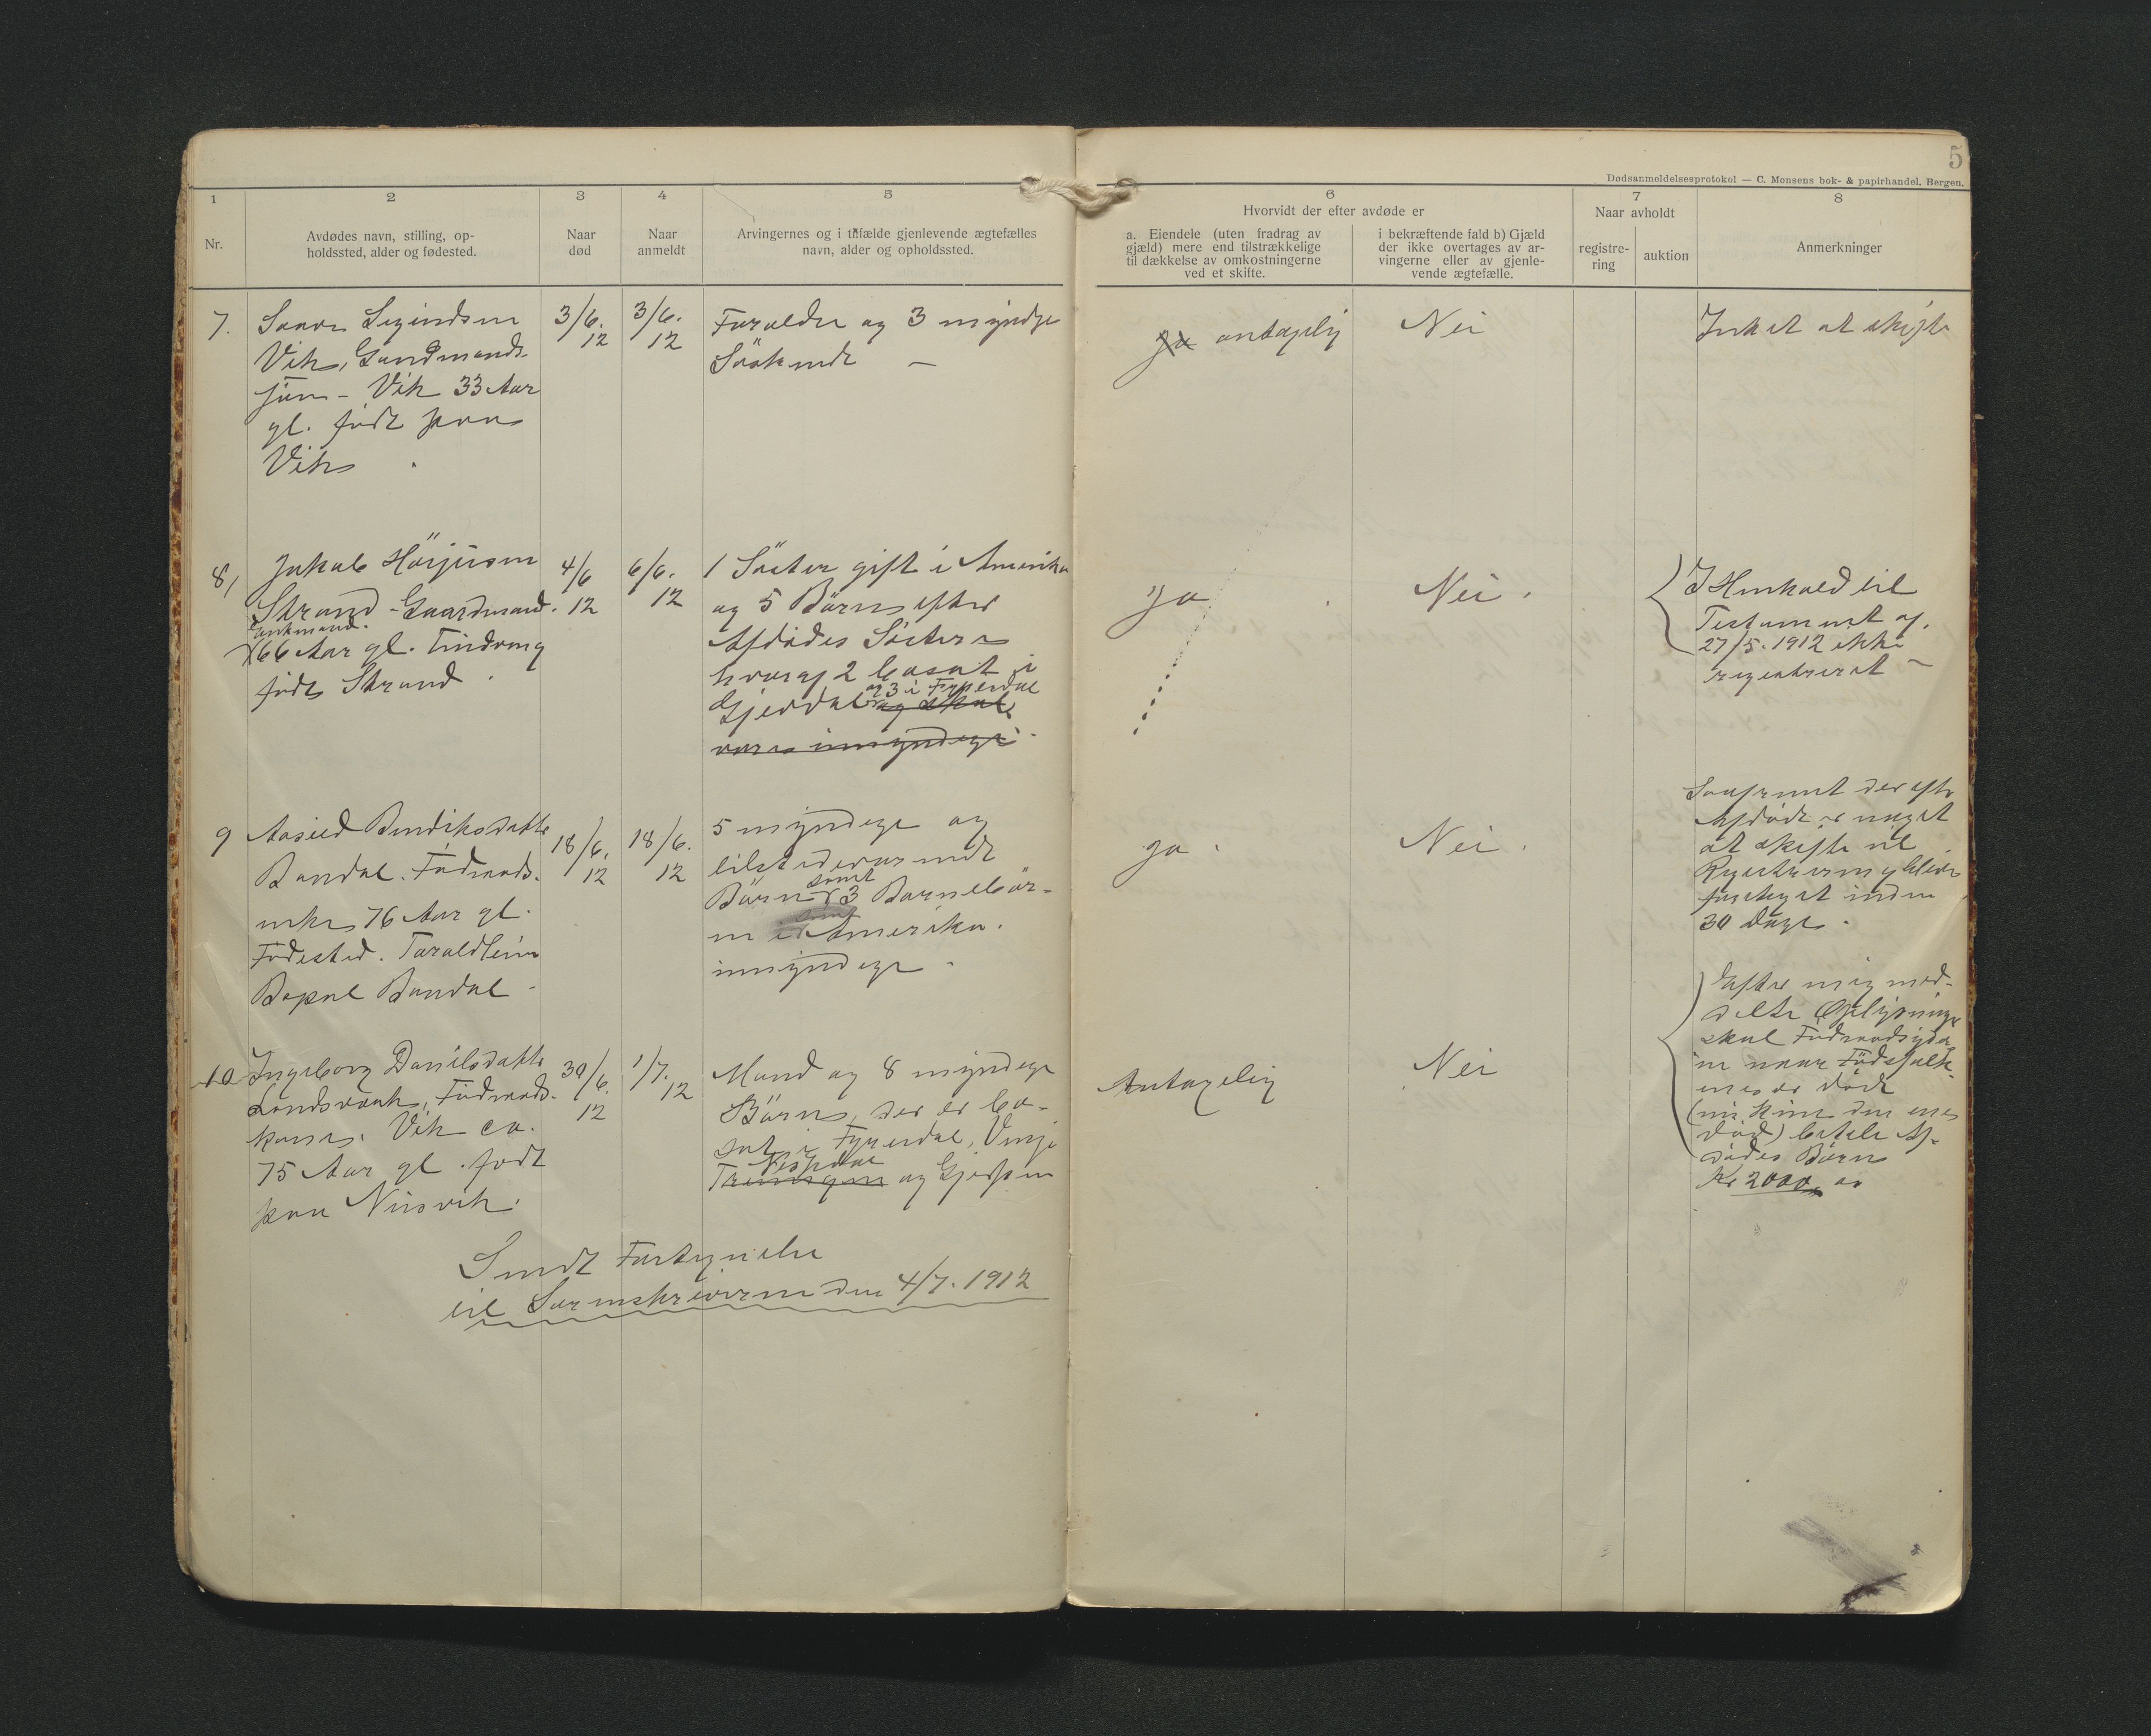 5
Dødsanmeldelsesprotokol — C. Monsens bok- & papirhandel, Bergen.
1
2
3
4
5
6
7
8
Nr.
Avdødes navn, stilling, op-
holdssted, alder og fødested.
Naar
død
Naar
anmeldt
Arvingernes og i tilfælde gjenlevende ægtefælles
navn, alder og opholdssted.
Hvorvidt der efter avdøde er
a. Eiendele (uten fradrag av
gjæld) mere end tilstrækkelige
til dækkelse av omkostningerne
ved et skifte.
i bekræftende fald b) Gjæld
der ikke overtages av ar-
vingerne eller av gjenle-
vende ægtefælle.
Naar avholdt
registre-
ring
auktion
Anmerkninger
7.
Vik, Gaardmands-
søn - Vik 33 Aar
gl. født paa
Vik
3/6.
12
3/6.
12
Foraldre og 3 myndge
Söskende —
Ja antagelig
Nei
Intet at skifte
8,
Jakob
Strand - Gaardmand.
66 Aar gl. Tindvang
født Strand
4/6
12
6/6.
12
1 Söster gift i Amerika
og 5 Börn efter
Afdödes Söster
hvoraf 2 bosat i
Gjerdal og 3 i Fyresdal
og skal
være umyndige
Ja
Nei.
I Henhold til
Testament af
27/5. 1912 ikke
registreret —
9
Aaslid Bendiksdatter
Bandal. Födraads-
enke 76 Aar gl.
Födested. Taraldlein
Bandal
18/6.
12
18/6.
12
5 myndige og
tilstedevarende
Börn samt 3 Barnebör-
n i Amerika.
umyndige
Ja.
Nei.
Saafremt der efter
Afdöde er noget
at skifte vil
Registrering blive
foretaget inden
30 Dage.
10
Ingeborg Danielsdatter
Landsverk, Födraads-
kone. Vik ca.
75 Aar gl. født
paa Nisvik.
30/6.
12
1/7.
12
Mand og 8 myndige
Börn, der er bo-
sat i Fyresdal, Vinje
og Gjerpen
Antagelig
Nei
Efter mig med-
delte Oplysninger
skal Födraadsyder-
en naar Födsfolk-
ene er død
død) betale Af-
dödes Börn
Kr 2000,00
Sendt Fortegnelse
til Sorenskriveren den 4/7. 1912